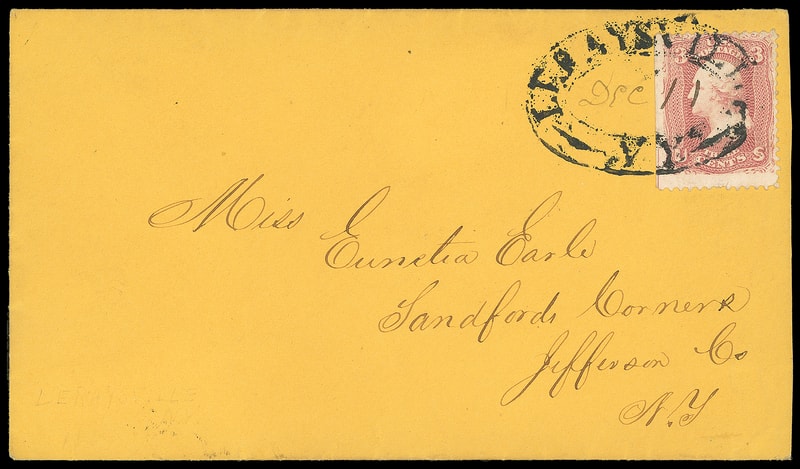 LERAYSVILLE
DEC 11
N.Y.
3 3
U S
CENTS
Miss
Eunetia Earle
Sandfords Corners
Jefferson Co
N.Y